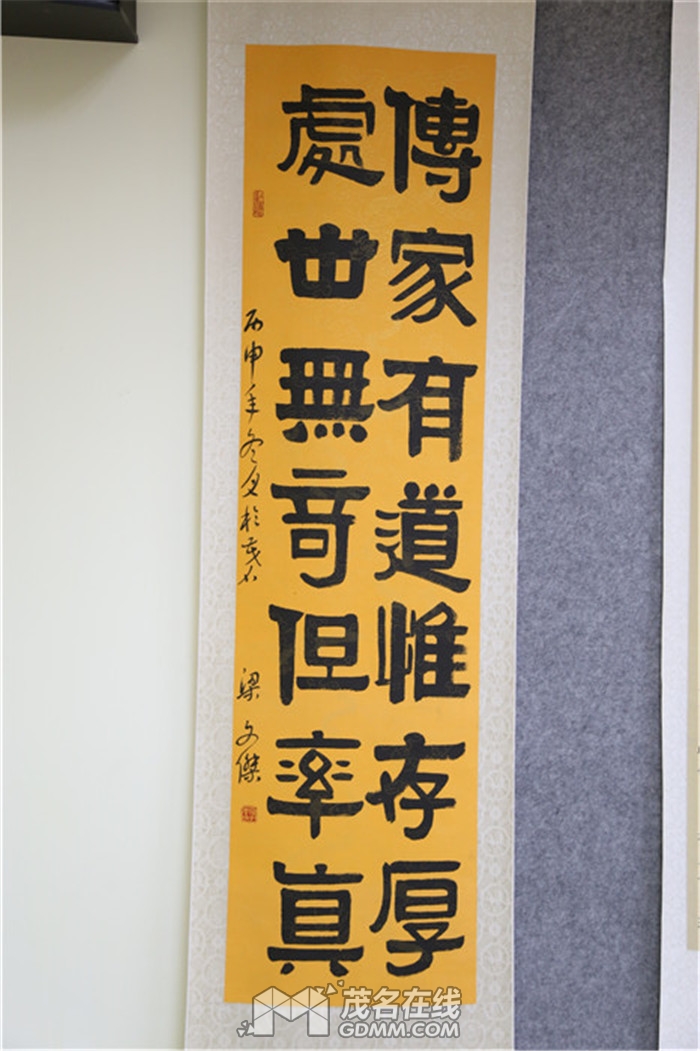 傳家有道惟存厚
處世無奇但率真
丙申年冬月於茂名
梁文傑
茂名在线
GDMM.COM